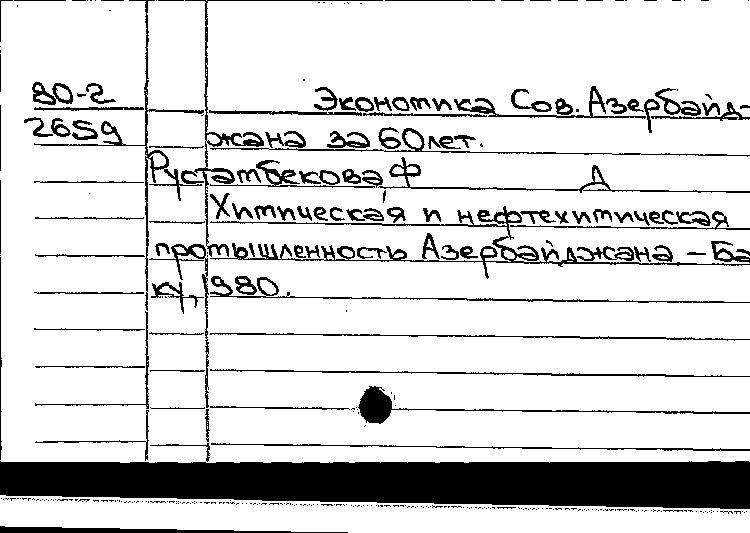 80-2 Экономика Сов. Азербайд-
2659 жана за 60 лет.
Рустамбекова, Ф Д
Химическая и нефтехимическая
промышленность Азербайджана – Ба
ку, 1980.